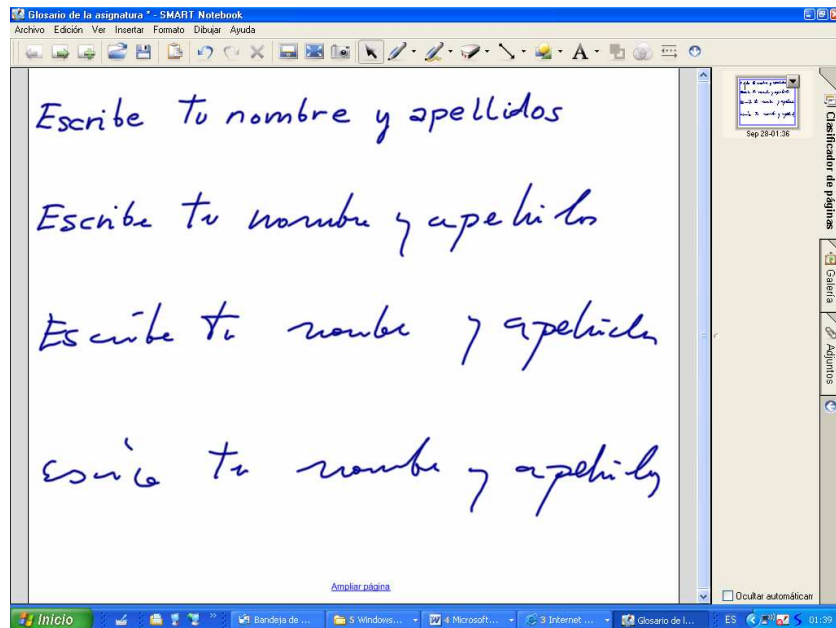 Glosario de la asignatura * - SMART Notebook
Archivo Edición Ver Insertar Formato Dibujar Ayuda
Escribe tu nombre y apellidos
Escribe tu nombre y apellidos
Escribe tu nombre y apellidos
Escribe tu nombre y apellidos
Ampliar página
Sep 28-01:36
Clasificador de páginas
Galería
Adjuntos
Ocultar automáticam
Inicio
Bandeja de ...
5 Windows...
4 Microsoft...
3 Internet ...
Glosario de l...
ES
01:39